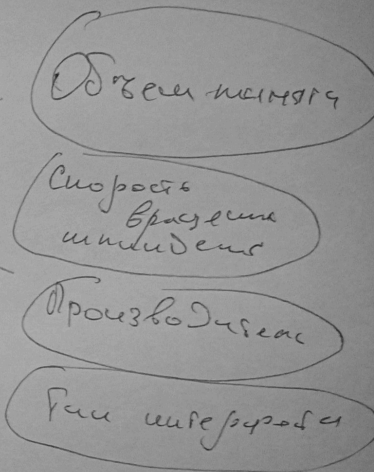 Объем памяти
Скорость
вращения
шпинделя
Производитель
Тип интерфейса